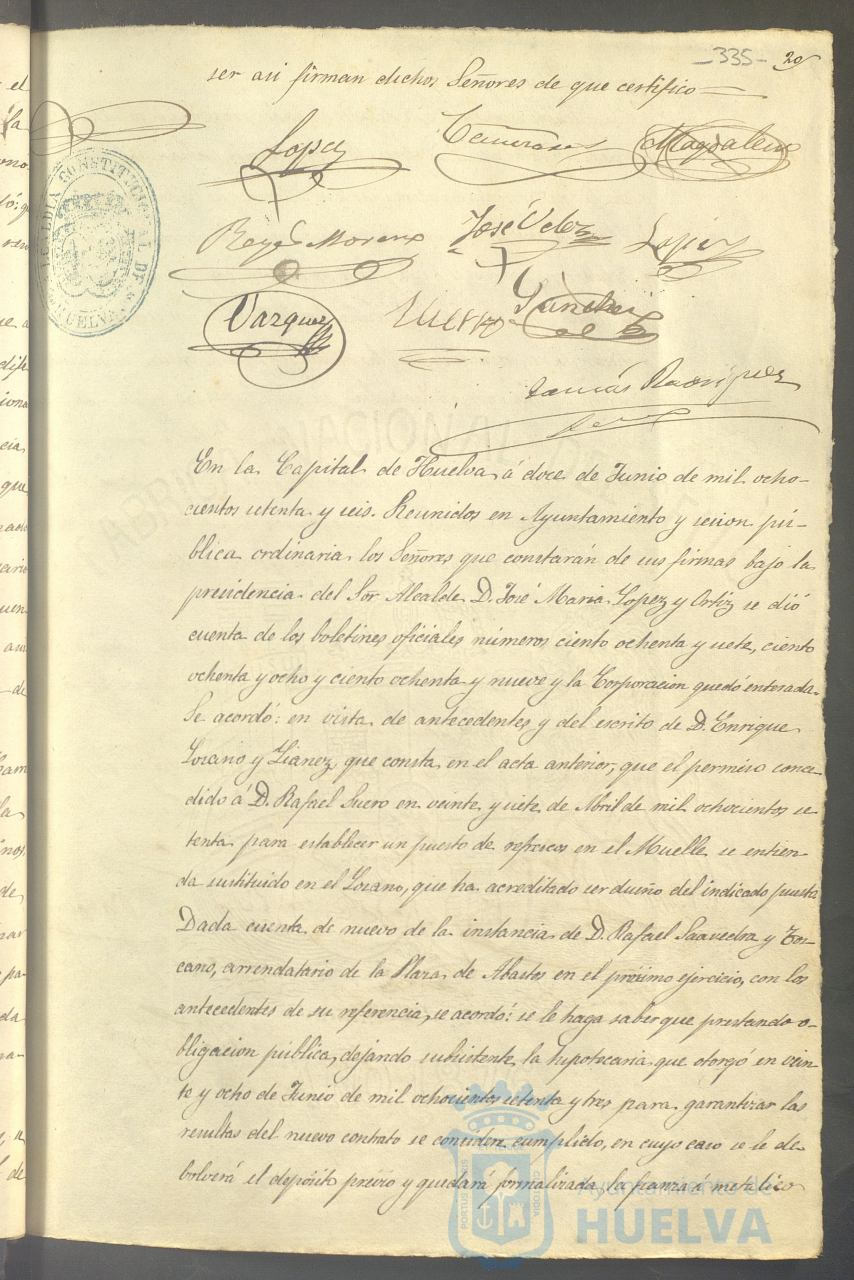 -335- 29
ser asi firman dichos Señores de que certifico
Lopez
Magdalena
Reyes Moreno
José Velez
Lopez
Vazquez
Suero
Sanchez
Tomás Rodriguez
ALCALDIA CONSTITUCIONAL DE HUELVA
En la Capital de Huelva á doce de Junio de mil ocho-
cientos setenta y seis. Reunidos en Ayuntamiento y sesion pú-
blica ordinaria los Señores que constarán de sus firmas bajo la
presidencia del Sor Alcalde D. José Maria Lopez y Ortiz se dió
cuenta de los boletines oficiales números ciento ochenta y siete, ciento
ochenta y ocho y ciento ochenta y nueve y la Corporacion quedó enterada.
Se acordó: en vista de antecedentes y del escrito de D. Enrique
Lozano y Lianez, que consta en el acta anterior, que el permiso conce-
dido á D. Rafael Suero en veinte y siete de Abril de mil ochocientos se-
tenta para establecer un puesto de refrescos en el Muelle se entien
da sustituido en el Lozano, que ha acreditado ser dueño del indicado puesto
Dada cuenta de nuevo de la instancia de D. Rafael Saavedra y Tos-
cano, arrendatario de la Plaza de Abastos en el próximo ejercicio, con los
antecedentes de su referencia, se acordó: se le haga saber que prestando o-
bligacion pública, dejando subsistente la hipotecaria que otorgó en vein-
te y ocho de Junio de mil ochocientos setenta y tres para garantizar las
resultas del nuevo contrato se considere cumplido, en cuyo caso se le de-
bolverá el depósito previo y quedará formalizada la fianza á metalico
Ayuntamiento de
HUELVA
PORTUS MARIS
ET TERRAE
CUSTODIA